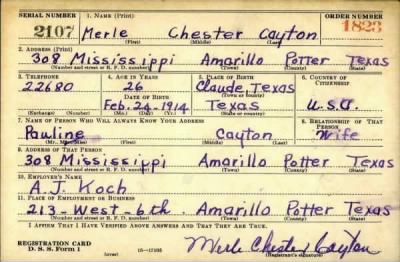 SERIAL NUMBER 1. NAME (Print) ORDER NUMBER
2107 Merle Chester Cayton 1823
(First) (Middle) (Last)
2. ADDRESS (Print)
308 Mississippi Amarillo Potter Texas
(Number and street or R. F. D. number) (Town) (County) (State)
3. TELEPHONE 4. AGE IN YEARS 5. PLACE OF BIRTH 6. COUNTRY OF CITIZENSHIP
22680 26 Claude, Texas
DATE OF BIRTH (Town or county)
Feb. 24-1914 Texas U.S.A.
(Exchange) (Number) (Mo.) (Day) (Yr.) (State or country)
7. NAME OF PERSON WHO WILL ALWAYS KNOW YOUR ADDRESS 8. RELATIONSHIP OF THAT PERSON
Pauline Cayton Wife
(First) (Middle) (Last)
9. ADDRESS OF THAT PERSON
308 Mississippi Amarillo Potter Texas
(Number and street or R. F. D. number) (Town) (County) (State)
10. EMPLOYER'S NAME
A. J. Koch
11. PLACE OF EMPLOYMENT OR BUSINESS
213 West-6th. Amarillo Potter Texas
(Number and street or R. F. D. number) (Town) (County) (State)
I AFFIRM THAT I HAVE VERIFIED ABOVE ANSWERS AND THAT THEY ARE TRUE.
REGISTRATION CARD
D. S. S. Form 1 (over) Merle Chester Cayton
(Registrant's signature)